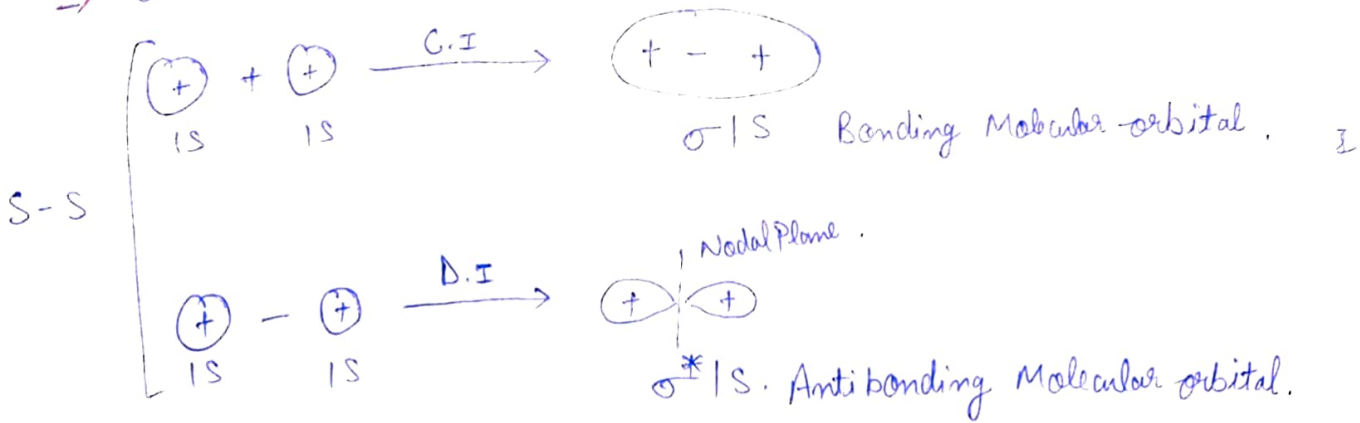 + + + C.I + - +
1S 1S
σ1S Bonding Molecular orbital. I
S-S
Nodal Plane.
+ - + D.I + +
1S 1S
σ*1S. Antibonding Molecular orbital.